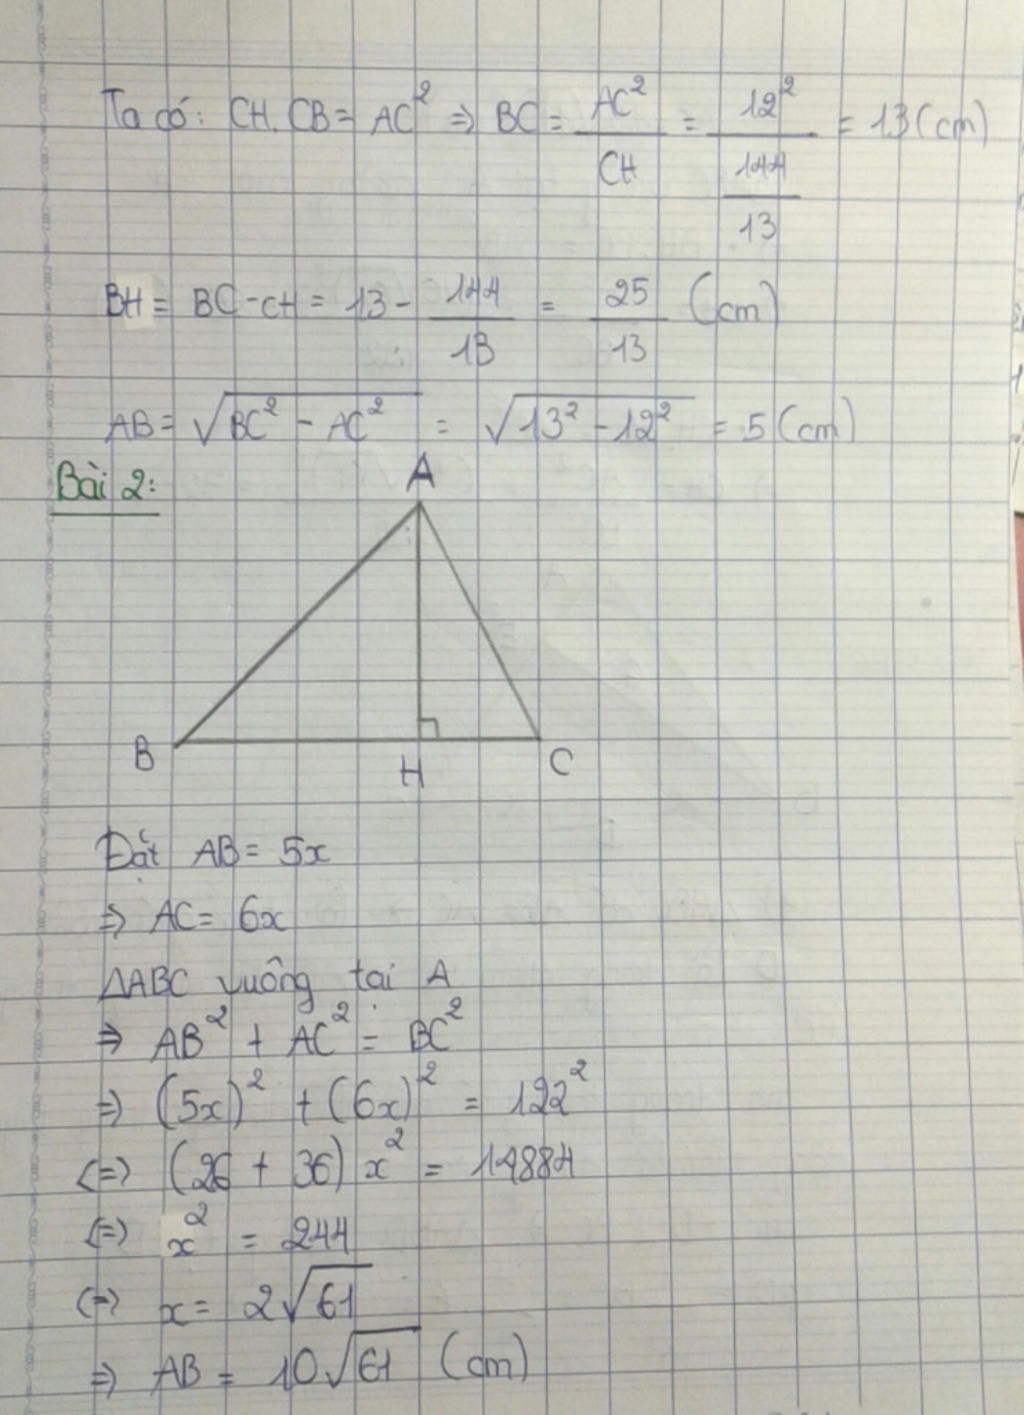 Ta có: CH. CB = AC² ⇒ BC = AC²/CH = 12²/(144/13) = 13 (cm)
BH = BC - CH = 13 - 144/13 = 25/13 (cm)
AB = √(BC² - AC²) = √(13² - 12²) = 5 (cm)
Bài 2:
A
B
H
C
Đặt AB = 5x
⇒ AC = 6x
ΔABC vuông tại A
⇒ AB² + AC² = BC²
⇒ (5x)² + (6x)² = 122²
(=) (26 + 36) x² = 14884
(=) x² = 244
(=) x = 2√61
⇒ AB = 10√61 (cm)